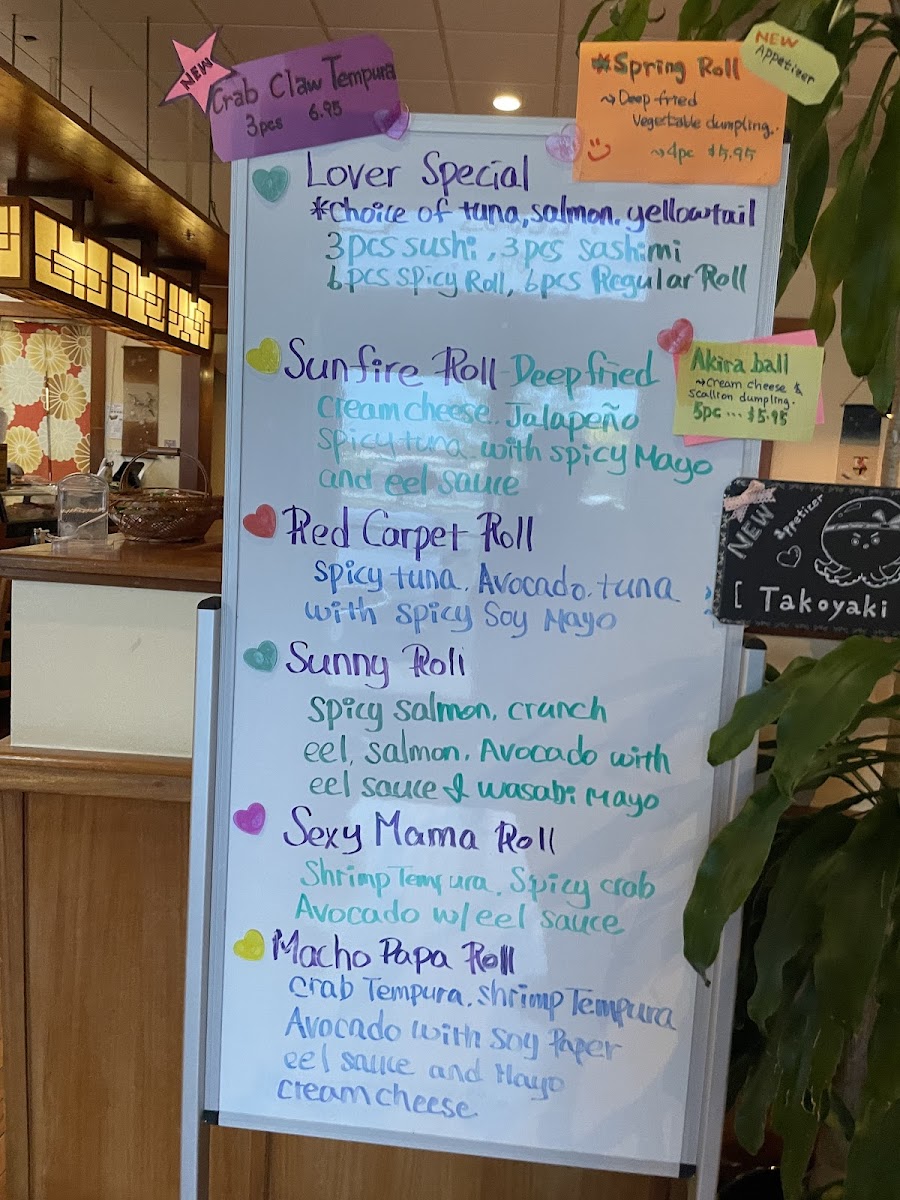 NEW
Crab Claw Tempura
3pcs 6.95
NEW
Appetizer
*Spring Roll
→Deep fried
Vegestable dumpling.
→4pc $5.95
Lover Special
*Choice of tuna, salmon. yellowtail
3pcs sushi, 3pcs sashimi
6pcs spicy Roll, 6pcs Regular Roll
Sunfire Roll Deep fried
cream cheese. Jalapeño
spicy tuna with spicy Mayo
and eel sauce
Akira ball
→cream cheese &
scallion dumpling.
5pc ... $5.95
Red Carpet Roll
spicy tuna. Avocado. tuna
with spicy Soy Mayo
NEW
Appetizer
[ Takoyaki
Sunny Roll
spicy salmon, crunch
eel, salmon. Avocado with
eel sauce & wasabi Mayo
Sexy Mama Roll
Shrimp Tempura, Spicy crab
Avocado w/ eel sauce
Macho Papa Roll
crab Tempura. shrimp Tempura
Avocado with soy Paper
eel sauce and Mayo
cream cheese